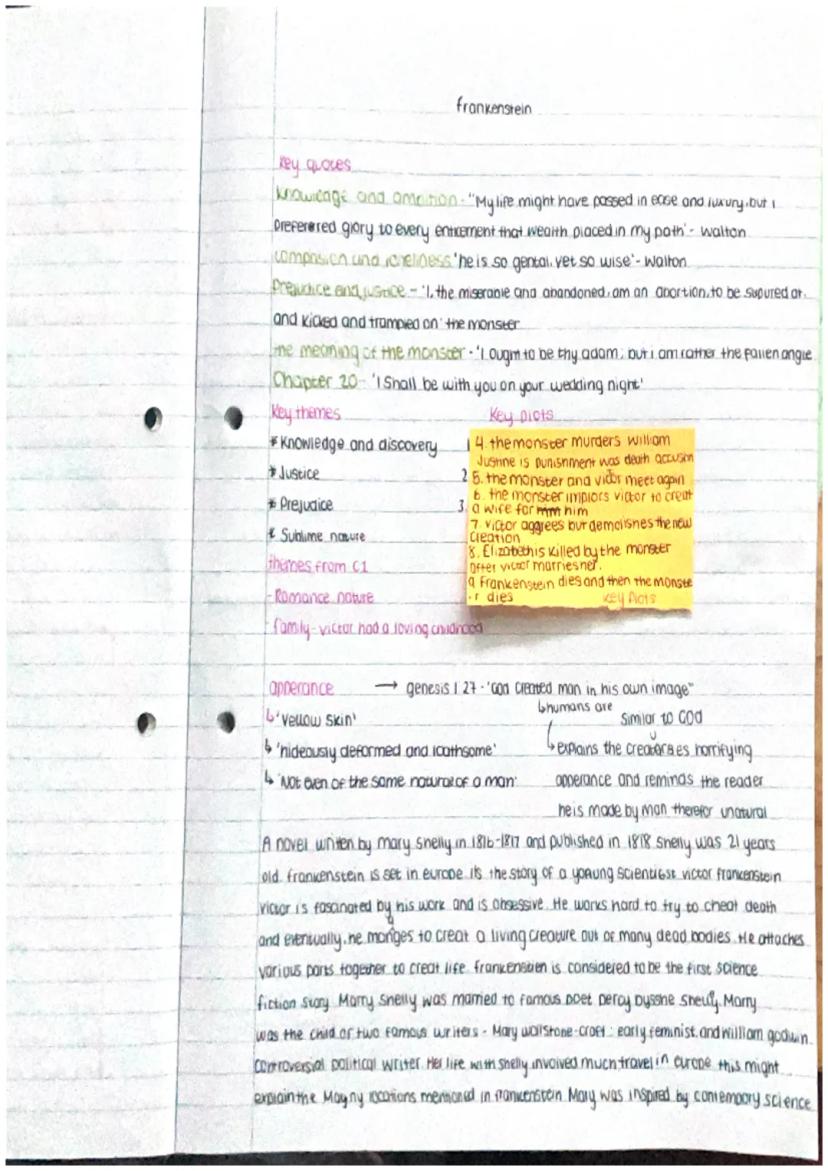 frankenstein
Key quotes
Knowledge and ambition - "My life might have passed in ease and luxury, but I
preferered glory to every enticement that wealth placed in my path' - Walton
compassion and loneliness 'he is so gental, yet so wise' - Walton
Prejudice and justice - 'I, the miserable and abandoned, am an abortion, to be spured at.
and kicked and trampled on' the monster
the meaning of the monster - 'I ought to be thy adam; but i am rather the fallen angle
Chapter 20 - 'I Shall be with you on your wedding night'
Key themes
Key plots
* Knowledge and discovery
* Justice
* Prejudice
* Sublime nature
1
2
3.
4. the monster murders william
Justine is punishment was death
5. the monster and victor meet again
6. the monster implors victor to creat
a wife for him
7. victor aggrees but demolishes the new
creation
8. Elizabeth is killed by the monster
after victor marries her.
9 Frankenstein dies and then the monste
r dies
Key plots
themes from C1
- Romance nature
- family - victor had a loving childhood
apperance → genesis 1 27 - 'God created man in his own image"
↳ humans are
similar to GOD
↳ 'Yellow skin'
↳ 'hideously deformed and loathsome'
↳ explains the horrifying
↳ 'Not even of the same nature of a man'
apperance and reminds the reader
he is made by man therefor unatural
A novel written by mary Shelly in 1816-1817 and published in 1818 Shelly was 21 years
old. frankenstein is set in europe its the story of a young scientist victor frankenstein
victor is fascinated by his work and is obsessive. He works hard to try to cheat death
and eventually, he manges to creat a living creature out of many dead bodies. He attaches
various parts together to creat life. frankenstien is considered to be the first science
fiction story. Marry Shelly was married to famous poet percy bysshe Shelly. Marry
was the child of two famous writers - Mary wollstone-croft : early feminist, and william godwin
controversial political writer. Her life with shelly involved much travel in europe this might
explain the locations mentioned in frankenstein Mary was inspired by contempory science